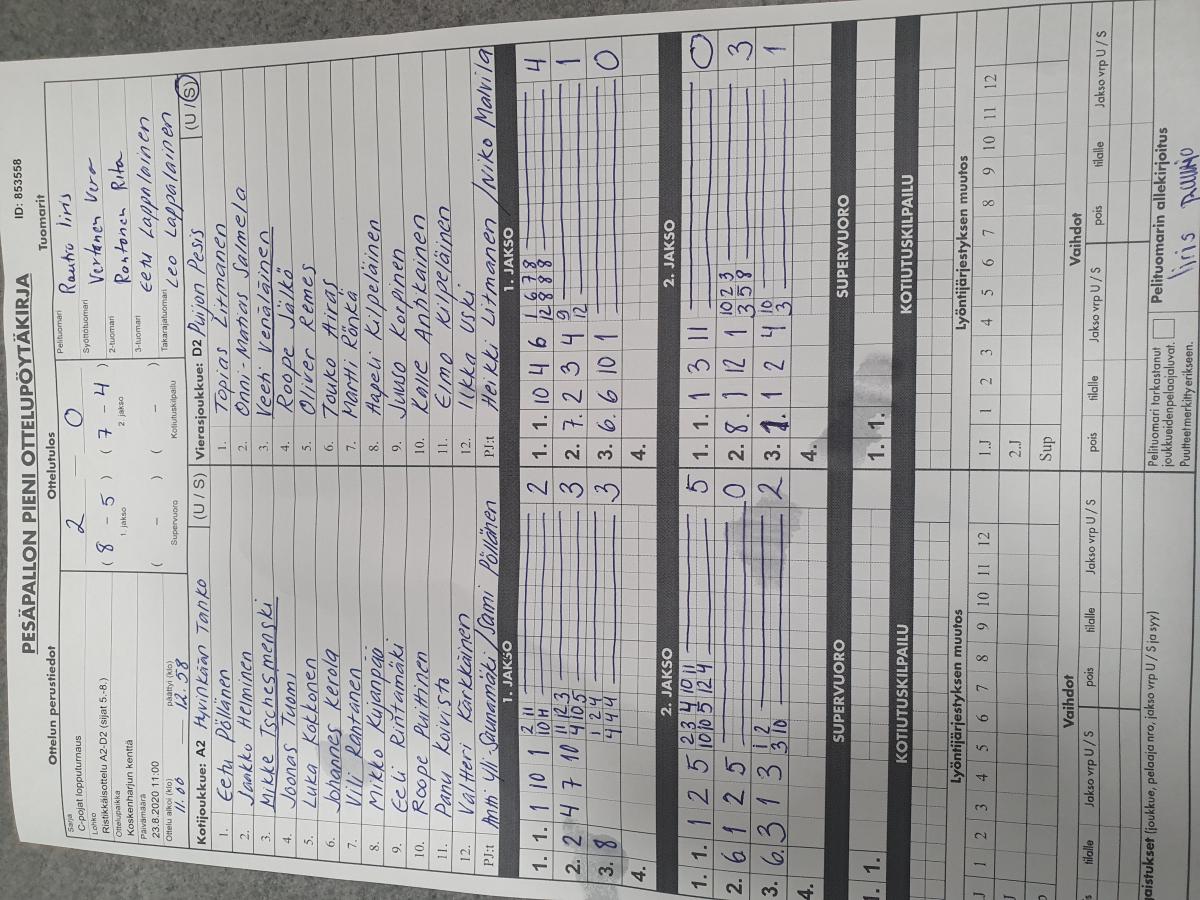 PESÄPALLON PIENI OTTELUPÖYTÄKIRJA
ID: 853558
Ottelun perustiedot
Ottelutulos
Tuomarit
Sarja
C-pojat lopputurnaus
Lohko
Ristikkäisottelu A2-D2 (sijat 5.-8.)
Ottelupaikka
Koskenharjun kenttä
Päivämäärä
23.8.2020 11:00
Ottelu alkoi (klo)
11.00
päättyi (klo)
12.58
2 – 0
( 8 – 5 ) ( 7 – 4 )
1. jakso
2. jakso
( – ) ( – )
Supervuoro
Kotiutuskilpailu
Pelituomari
Rautio Iiris
Syöttötuomari
Vertanen Vera
2-tuomari
Rantanen Rita
3-tuomari
Eetu Lappalainen
Takarajatuomari
Leo Lappalainen
Kotijoukkue: A2 Hyvinkään Tahko (U / S)
1. Eetu Pöllänen
2. Jaakko Heminen
3. Mikke Tschesmenski
4. Joonas Tuomi
5. Luka Kokkonen
6. Johannes Kerola
7. Vili Rantanen
8. Mikko Kujanpää
9. Eeli Rintamäki
10. Roope Puittinen
11. Panu Koivisto
12. Valtteri Kärkkäinen
PJ:t Antti Yli-Saunamäki/Sami Pöllänen
Vierasjoukkue: D2 Puijon Pesis (U / S)
1. Topias Litmanen
2. Onni-Matias Sarmela
3. Veeti Venäläinen
4. Roope Jälkö
5. Oliver Remes
6. Touko Airas
7. Martti Rönkä
8. Aapeli Kilpeläinen
9. Juuso Korpinen
10. Kalle Anhkainen
11. Elmo Kilpeläinen
12. Ilkka Uski
PJ:t Heikki Litmanen /Niko Malvila
1. JAKSO
1. 1. 1 10 1 2 11
10 11 2
2. 2 4 7 10 11 12 3
4 10 5 3
3. 8 1 2 4
4 4 4 3
4.
1. JAKSO
1. 1. 10 4 6 1 6 7 8
12 8 8 8 4
2. 7. 2 3 4 9
12 1
3. 6. 6 10 1 0
4.
2. JAKSO
1. 1. 1 2 5 2 3 4 10 11
10 10 5 12 4 5
2. 6 1 2 5 0
3. 6. 3 1 3 1 2
3 10 2
4.
2. JAKSO
1. 1. 1 3 11 0
2. 8. 1 12 1 10 2 3
3 5 8 3
3. 1. 1 2 4 10
3 1
4.
SUPERVUORO
1. 1.
SUPERVUORO
1. 1.
KOTIUTUSKILPAILU
KOTIUTUSKILPAILU
Lyöntijärjestyksen muutos
J 1 2 3 4 5 6 7 8 9 10 11 12
Lyöntijärjestyksen muutos
1.J 1 2 3 4 5 6 7 8 9 10 11 12
2.J
Sup
Vaihdot
tilalle Jakso vrp U / S pois tilalle Jakso vrp U / S
Vaihdot
pois tilalle Jakso vrp U / S pois tilalle Jakso vrp U / S
(joukkue, pelaaja nro, jakso vrp U / S ja syy)
Pelituomari tarkastanut
joukkueidenpelaajaluvat.
Puutteetmerkityverikseen.
Pelituomarin allekirjoitus
Iiris Rautio